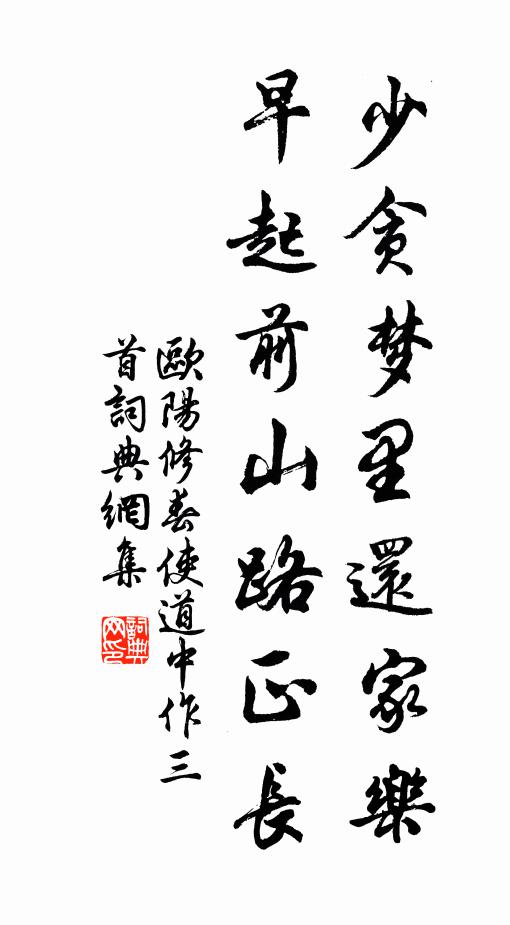 少貪梦里還家樂
早起前山路正長
歐陽修奉使道中作三
首詞典網集
詞典网印